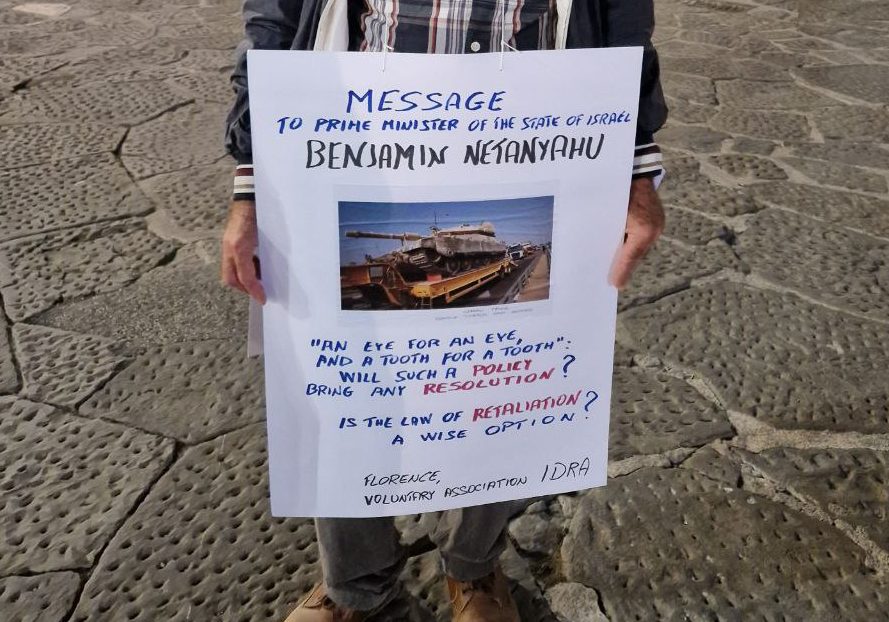 MESSAGE
TO PRIME MINISTER OF THE STATE OF ISRAEL
BENJAMIN NETANYAHU
"AN EYE FOR AN EYE,
AND A TOOTH FOR A TOOTH":
WILL SUCH A POLICY
BRING ANY RESOLUTION?
IS THE LAW OF RETALIATION?
A WISE OPTION?
FLORENCE,
VOLUNTARY ASSOCIATION IDRA